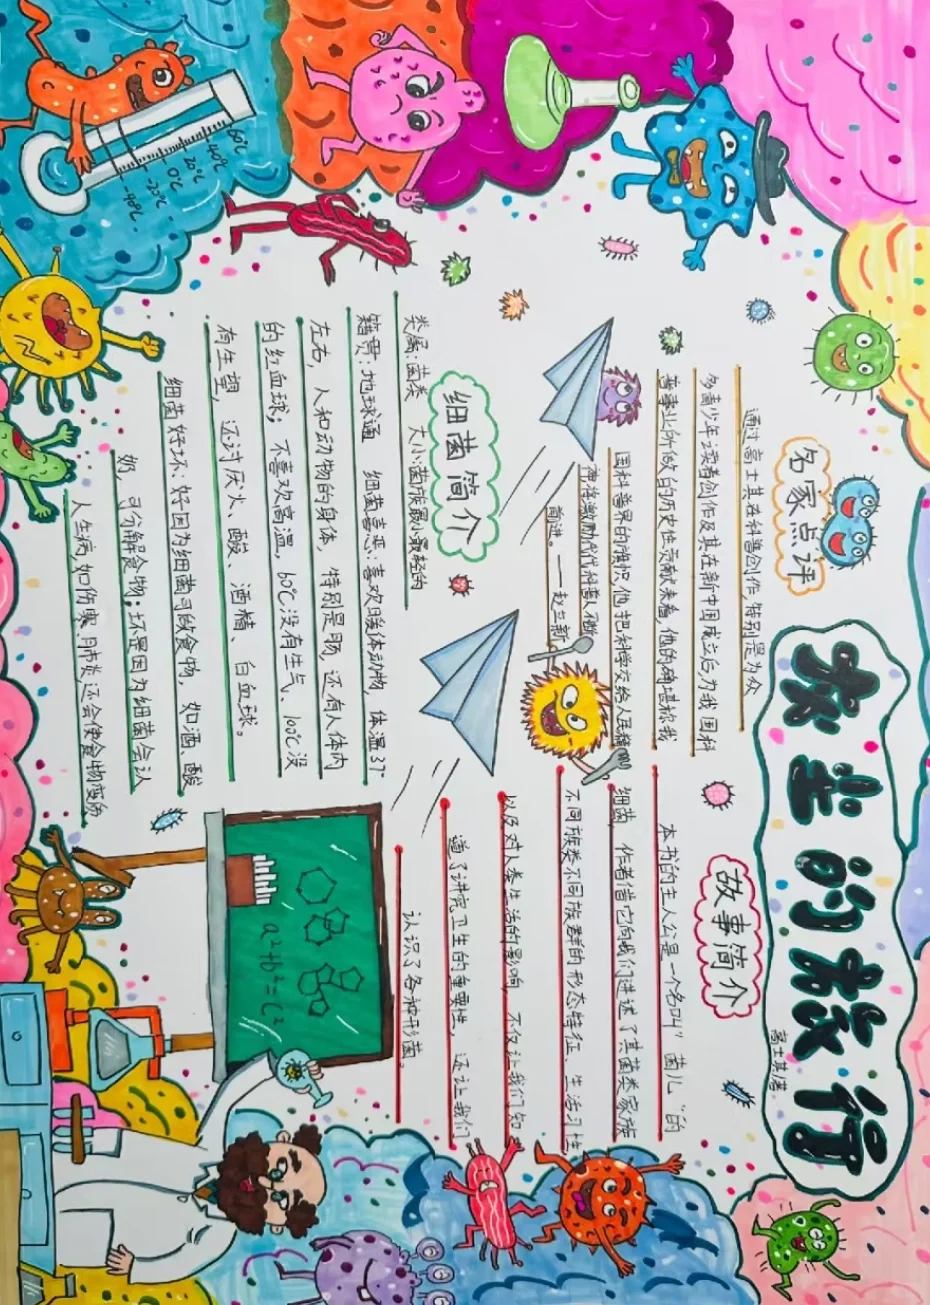 灰尘的旅行
高士其/著
名家点评
通过高士其在科普创作,特别是为众
多青少年读者创作及其在新中国成立后,为我国科
普事业所做的历史性贡献来看,他的确堪称我
国科普界的旗帜,他把科学交给人民精
神将激励代代科普人不断
前进。——赵立新
故事简介
本书的主人公是一个名叫"菌儿"的
细菌,作者借它向我们讲述了其菌类家族
不同族类不同族群的形态特征、生活习性
以及对人类生活的影响,不仅让我们知
道了讲究卫生的重要性,还让我们
认识了各种形菌。
细菌简介
类属:菌类 大小:菌族最小最轻的
籍贯:地球通 细菌喜恶:喜欢暖体动物,体温37°
左右,人和动物的身体,特别是肠,还有人体内
的红血球;不喜欢高温,60℃没有生气、100℃没
有生望,还讨厌火、酸、酒精、白血球。
细菌好坏:好因为细菌可酿食物,如酒、酸
奶,可分解食物;坏是因为细菌会让
人生病,如伤寒、肺炎还会使食物变质
60℃
40℃
20℃
0℃
-20℃
-40℃
a²+b²=c²